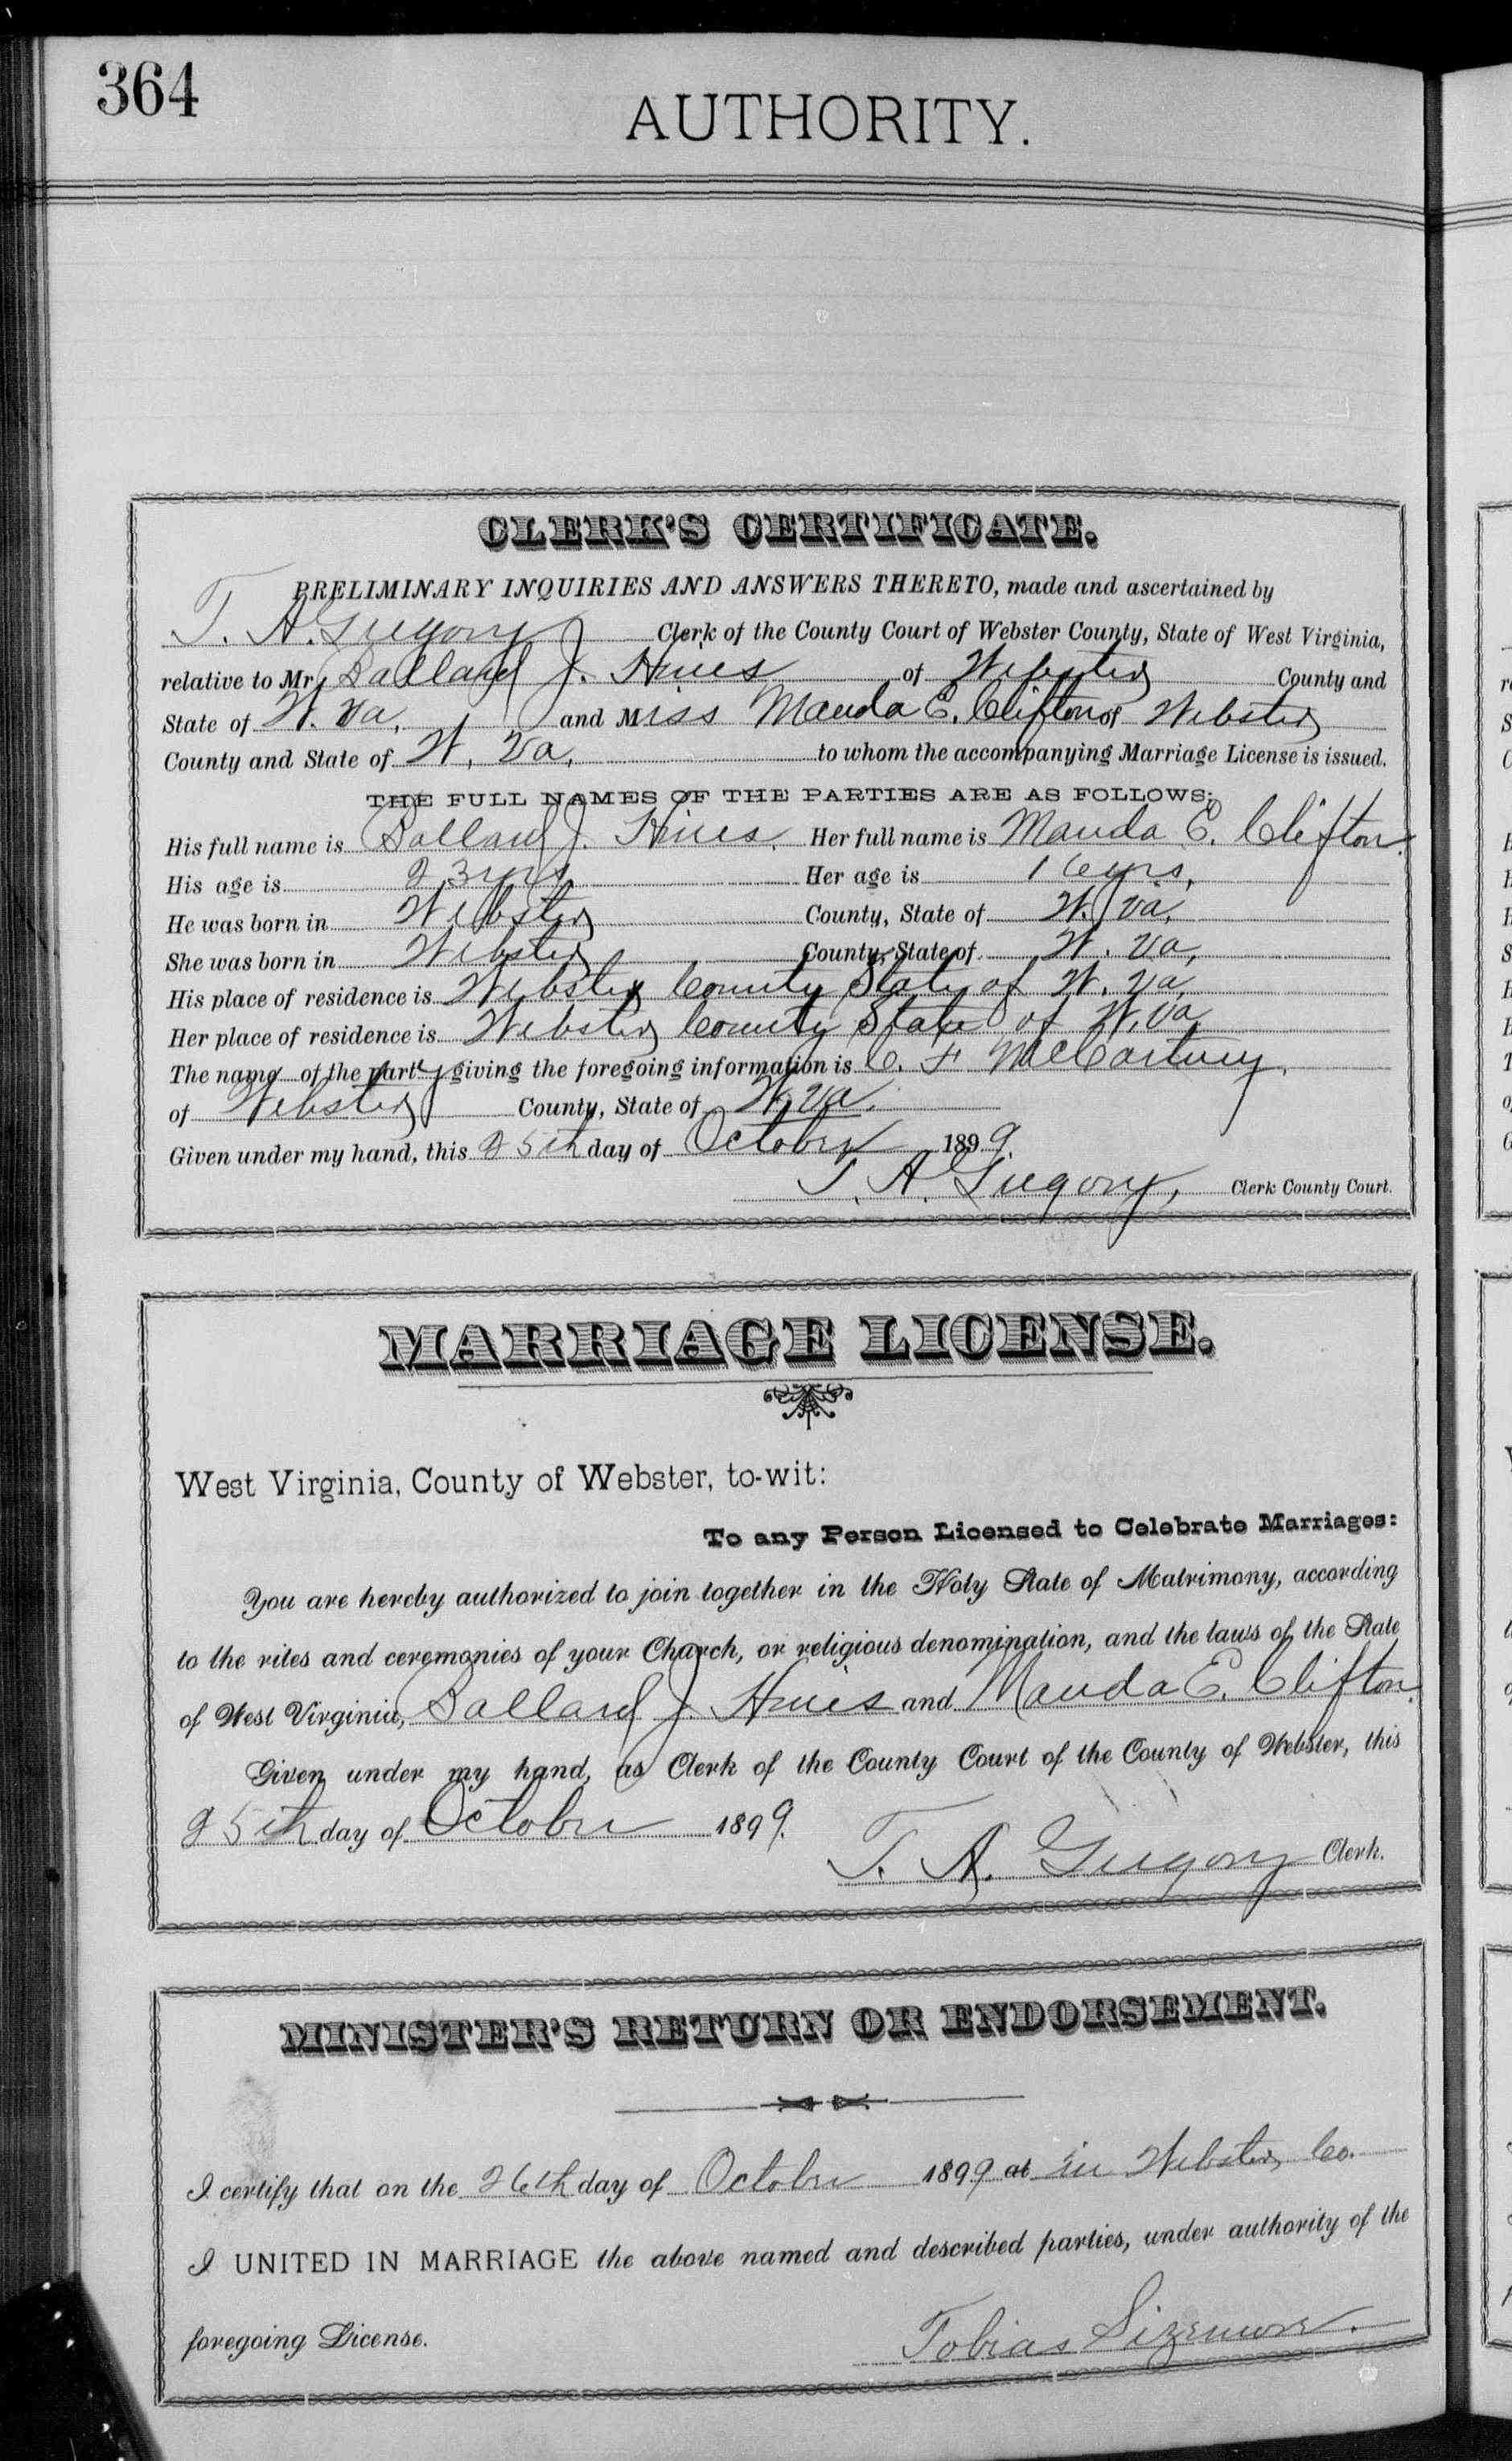 364
AUTHORITY.
CLERK'S CERTIFICATE.
PRELIMINARY INQUIRIES AND ANSWERS THERETO, made and ascertained by
T. A. Gregory Clerk of the County Court of Webster County, State of West Virginia,
relative to Mr. Ballard J. Hines of Webster County and
State of W. Va, and Miss Manda E. Clifton of Webster
County and State of W. Va, to whom the accompanying Marriage License is issued.
THE FULL NAMES OF THE PARTIES ARE AS FOLLOWS:
His full name is Ballard J. Hines. Her full name is Manda E. Clifton.
His age is 23 yrs Her age is 16 yrs,
He was born in Webster County, State of W. Va,
She was born in Webster County, State of W. Va,
His place of residence is Webster County State of W. Va,
Her place of residence is Webster County State of W. Va
The name of the party giving the foregoing information is C. F McCartney.
of Webster County, State of W. Va.
Given under my hand, this 25th day of October 1899.
T. A. Gregory, Clerk County Court.
MARRIAGE LICENSE.
West Virginia, County of Webster, to-wit:
To any Person Licensed to Celebrate Marriages:
You are hereby authorized to join together in the Holy State of Matrimony, according
to the rites and ceremonies of your Church, or religious denomination, and the laws of the State
of West Virginia, Ballard J. Hines and Manda E. Clifton.
Given under my hand, as Clerk of the County Court of the County of Webster, this
25th day of October 1899.
T. A. Gregory Clerk.
MINISTER'S RETURN OR ENDORSEMENT.
I certify that on the 26th day of October 1899 at in Webster Co.
I UNITED IN MARRIAGE the above named and described parties, under authority of the
foregoing License.
Tobias Sizemore.